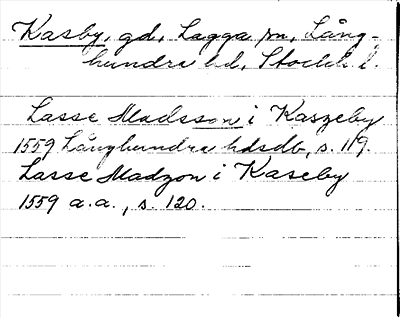 Kasby, gd, Lagga sn, Lång-
hundra hd, Stockh. l.
Lasse Madsson i Kaszeby
1559 Långhundra hdsdb, s. 119.
Lasse Madzon i Kaseby
1559 a.a., s. 120.